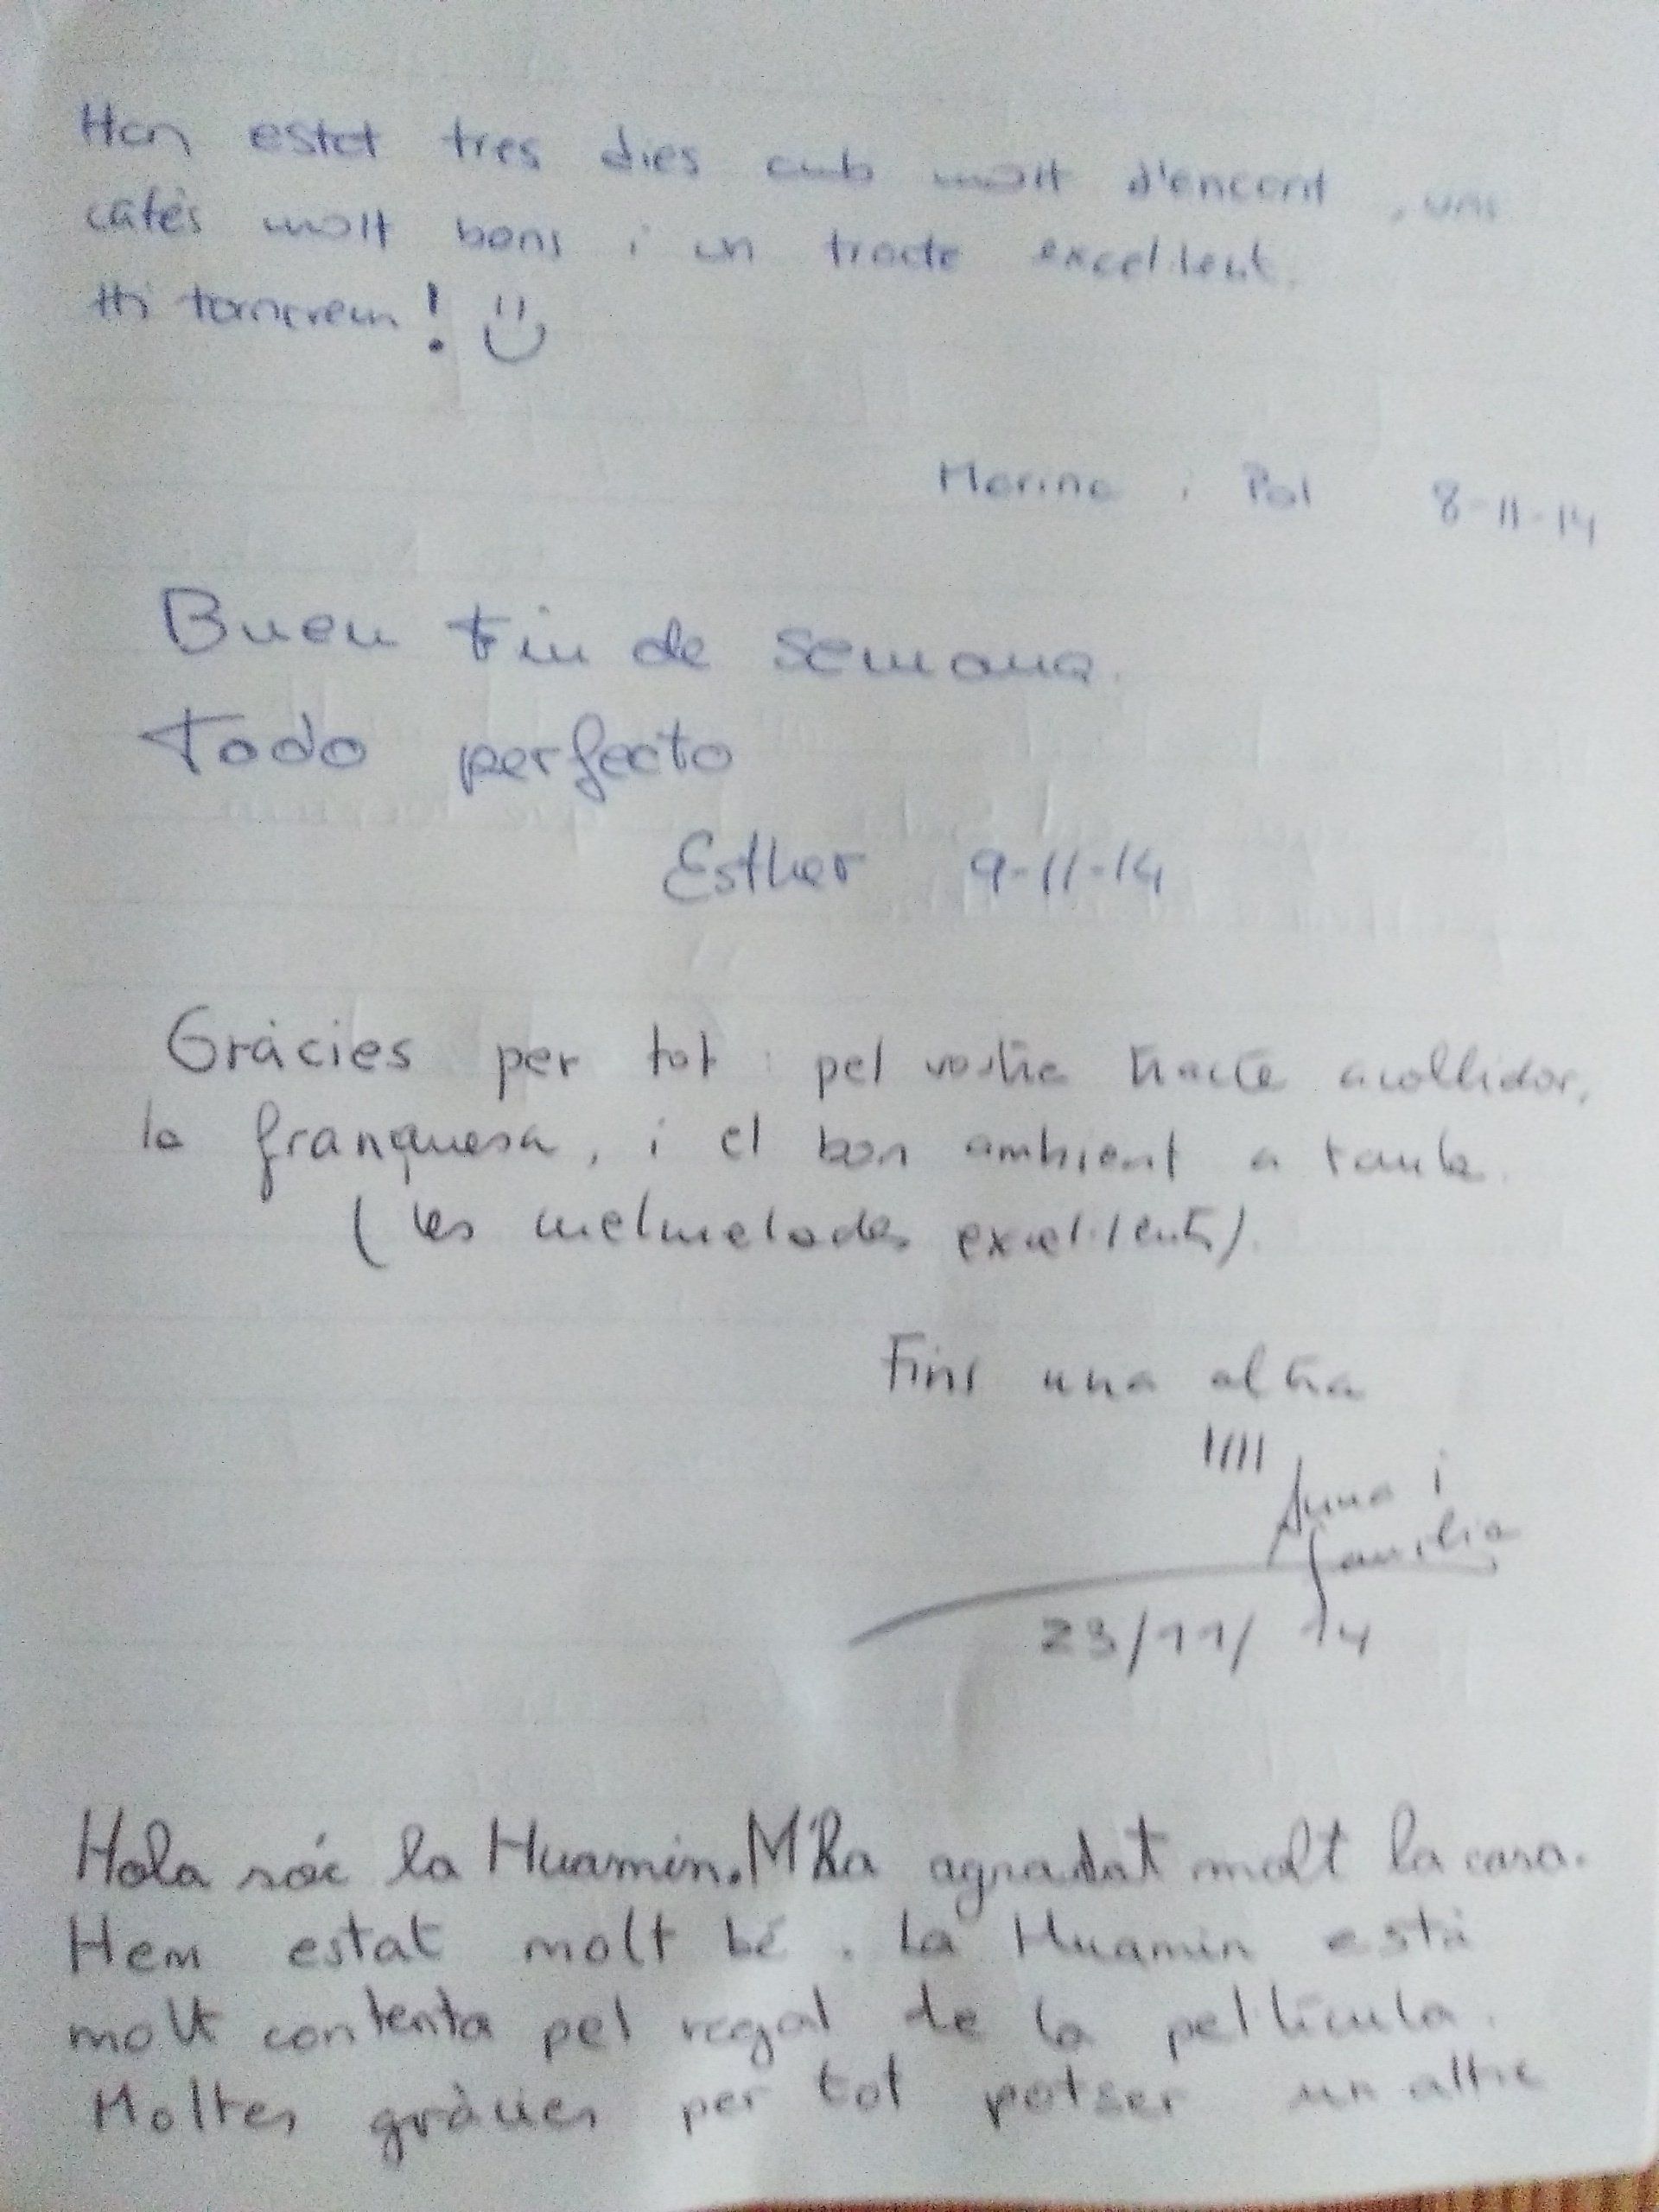 Han estat tres dies amb molt d'encant, uns
cafès molt bons i un tracte excel·lent.
Hi tornarem!
Marina i Pol 8-11-14
Buen fin de semana.
Todo perfecto
Esther 9-11-14
Gràcies per tot: pel vostre tracte acollidor,
la franquesa, i el bon ambient a taula.
(les melmelades excel·lents).
Fins una altra
Anna i
família
23/11/14
Hola sóc la Huamin. M'ha agradat molt la casa.
Hem estat molt bé. La Huamin està
molt contenta pel regal de la pel·lícula.
Moltes gràcies per tot potser un altre